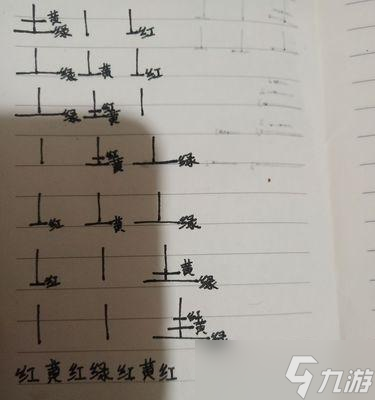 黄
绿 红
绿 黄 红
绿 红
黄
红
黄 绿
红 黄 绿
红 黄
绿
红
黄
绿
红黄红绿红黄红
九游